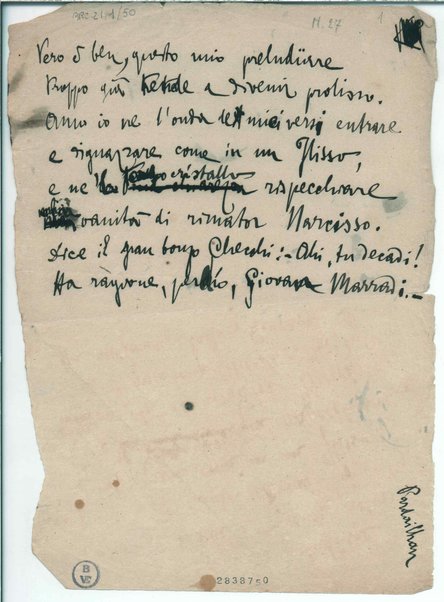 ARC-21.I/50
N. 27
1
Vero è ben, questo mio preludiare
troppo già tende a divenir prolisso.
Amo io ne l'onda de' miei versi entrare
e sguazzare come in un Ilisso,
e ne lo cristallo rispecchiare
vanità di rimator Narcisso.
Dice il gran bonzo Checchi: - Ahi, tu decadi!
Ha ragione, perdio, Giovanni Marradi. -
Pardailhan
B
VE
283875 0